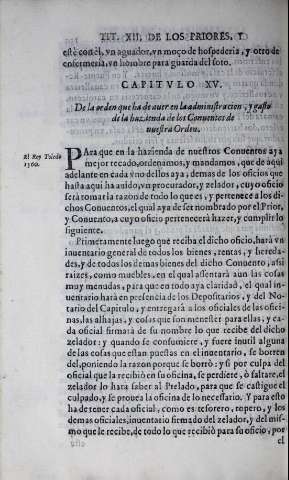 TIT. XII. DE LOS PRIORES, Y
este con el, vn aguador, vn moço de hospederia, y otro de
enfermeria, vn hombre para guarda del soto.
CAPITVLO XV.
De la orden que ha de auer en la administracion, y gasto
de la hazienda de los Conuentos de
nuestra Orden.
El Rey Toledo
1560.
PAra que en la hazienda de nuestros Conuentos aya
mejor recado, ordenamos, y mandamos, que de aqui
adelante en cada vno dellos aya, demas de los oficios que
hasta aqui ha auido, vn procurador, y zelador, cuyo oficio
sera tomar la razon de todo lo que es, y pertenece a los di-
chos Conuentos, el qual aya de ser nombrado por el Prior,
y Conuento, a cuyo oficio pertenecerá hazer, y cumplir lo
siguiente.
Primeramente luego que reciba el dicho oficio, hará vn
inuentario general de todos los bienes, rentas, y hereda-
des, y de todos los demas bienes del dicho Conuento, assi
raizes, como muebles, en el qual assentará aun las cosas
muy menudas, para que en todo aya claridad, el qual in-
uentario hará en presencia de los Depositarios, y del No-
tario del Capitulo, y entregará a los oficiales de las ofici-
nas, las alhajas, y cosas que son menester para ellas, y ca-
da oficial firmará de su nombre lo que recibe del dicho
zelador: y quando se consumiere, y fuere inutil alguna
de las cosas que estan puestas en el inuentario, se borren
del, poniendo la razon porque se borró: y si por culpa del
oficial que la recibió en su oficina, se perdiere, ò faltare, el
zelador lo hará saber al Prelado, para que se castigue el
culpado, y se prouea la oficina de lo necessario. Y para esto
ha de tener cada oficial, como es tesorero, ropero, y los
demas oficiales, inuentario firmado del zelador, y del mis-
mo que le recibe, de todo lo que recibió para su oficio, por
el